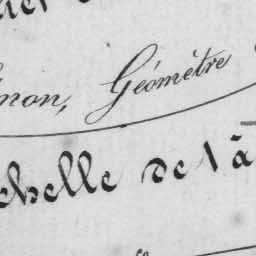 non, Géomètre
chelle de 1 à